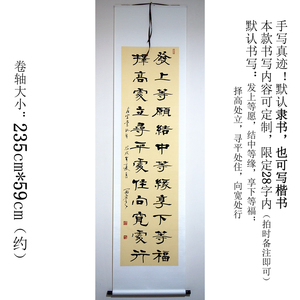 手写真迹！默认隶书，也可写楷书
本款书写内容可定制，限定28字内（拍时备注即可）
默认书写：发上等愿，结中等缘，享下等福；
择高处立，寻平处住，向宽处行
發上等願結中等緣享下等福
擇高處立尋平處住向寬處行
卷轴大小：235cm*59cm（约）